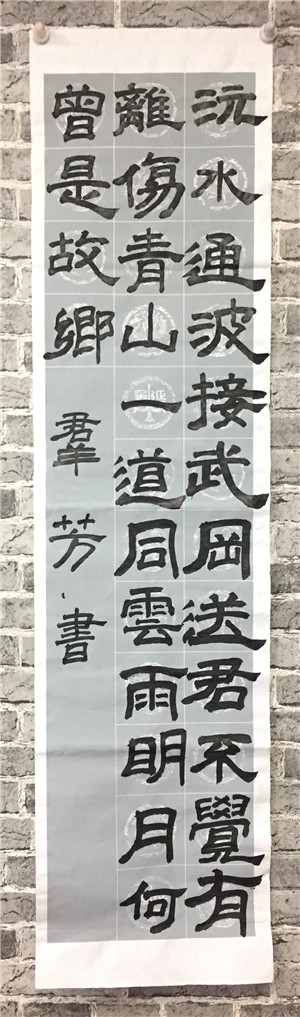 沅水通波接武岡送君不覺有
離傷青山一道同雲雨明月何
曾是故鄉
羣芳書